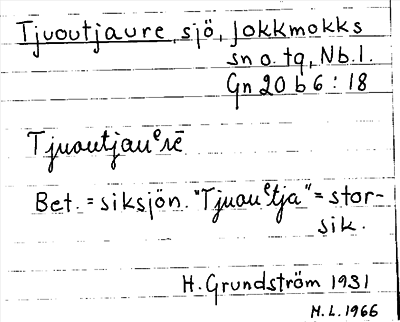 Tjuoutjaure, sjö, Jokkmokks
sn o. tg, Nb.l.
Gn 20 b 6 : 18
Tjuoutjauᵉrē
Bet. = siksjön. "Tjuouᵉtja" = stor-
sik.
H. Grundström 1931
M.L. 1966